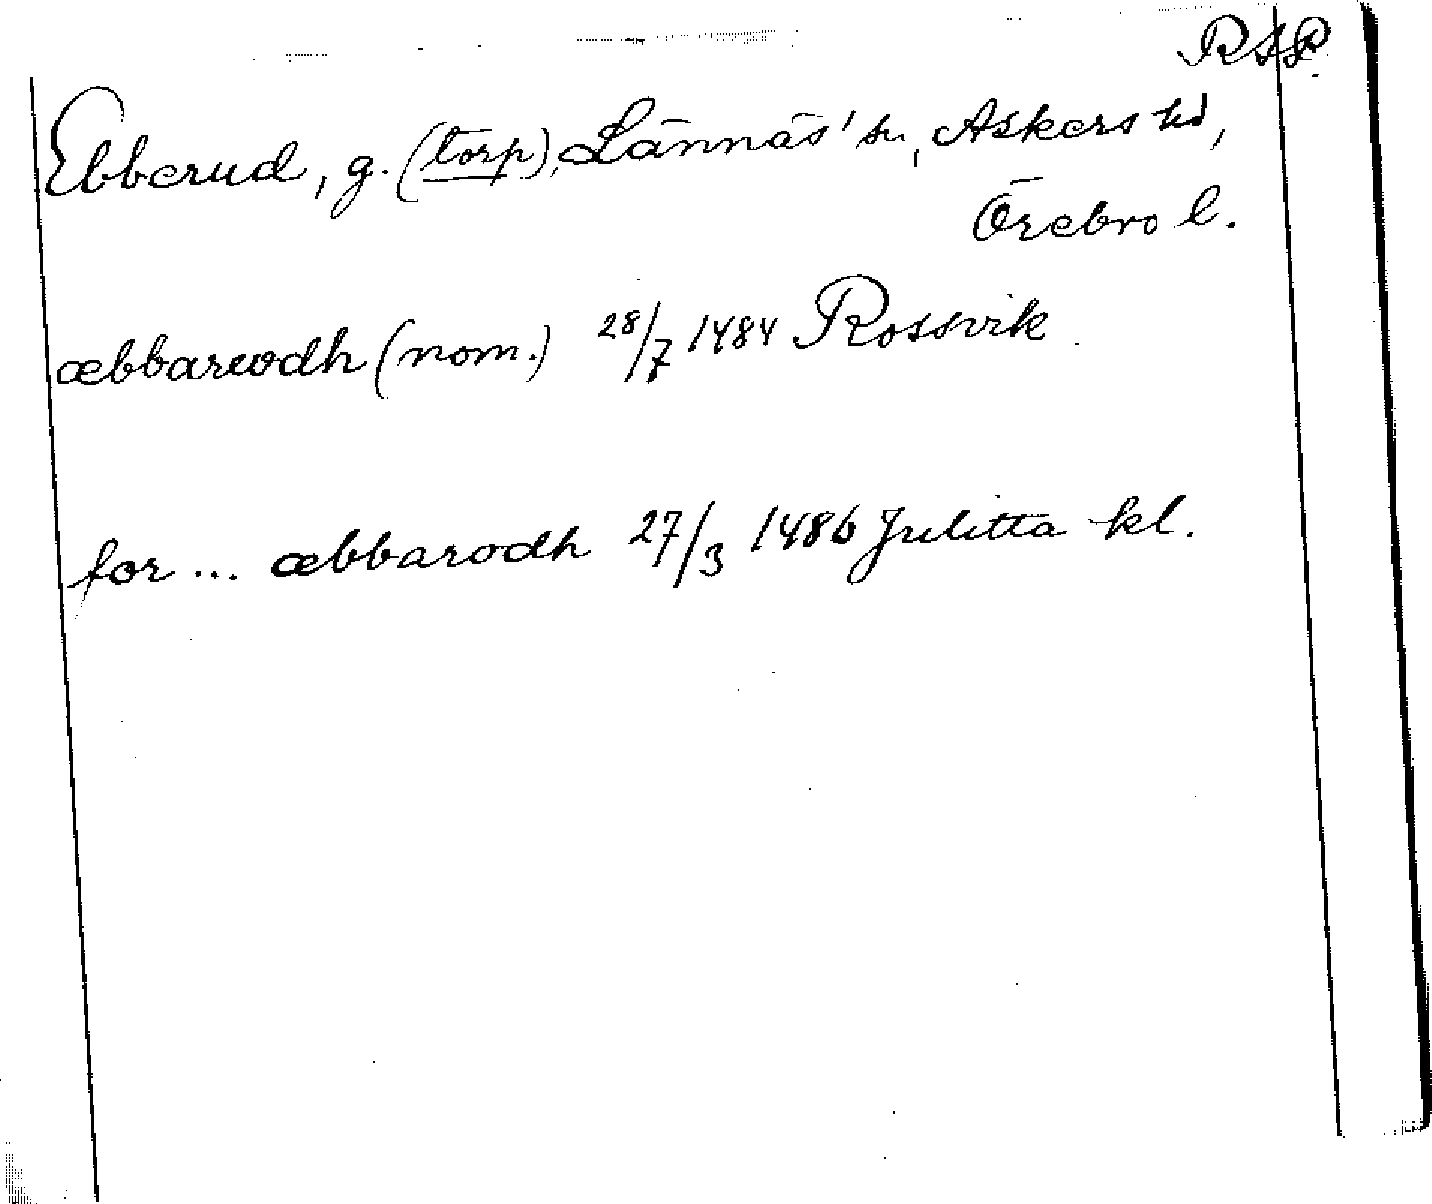 RSP
Ebberud, g. (torp), Lännäs' sn, Askers hd,
Örebro l.
æbbarwdh (nom.) 28/7 1484 Rossvik.
for ... æbbarodh 27/3 1486 Julitta kl.